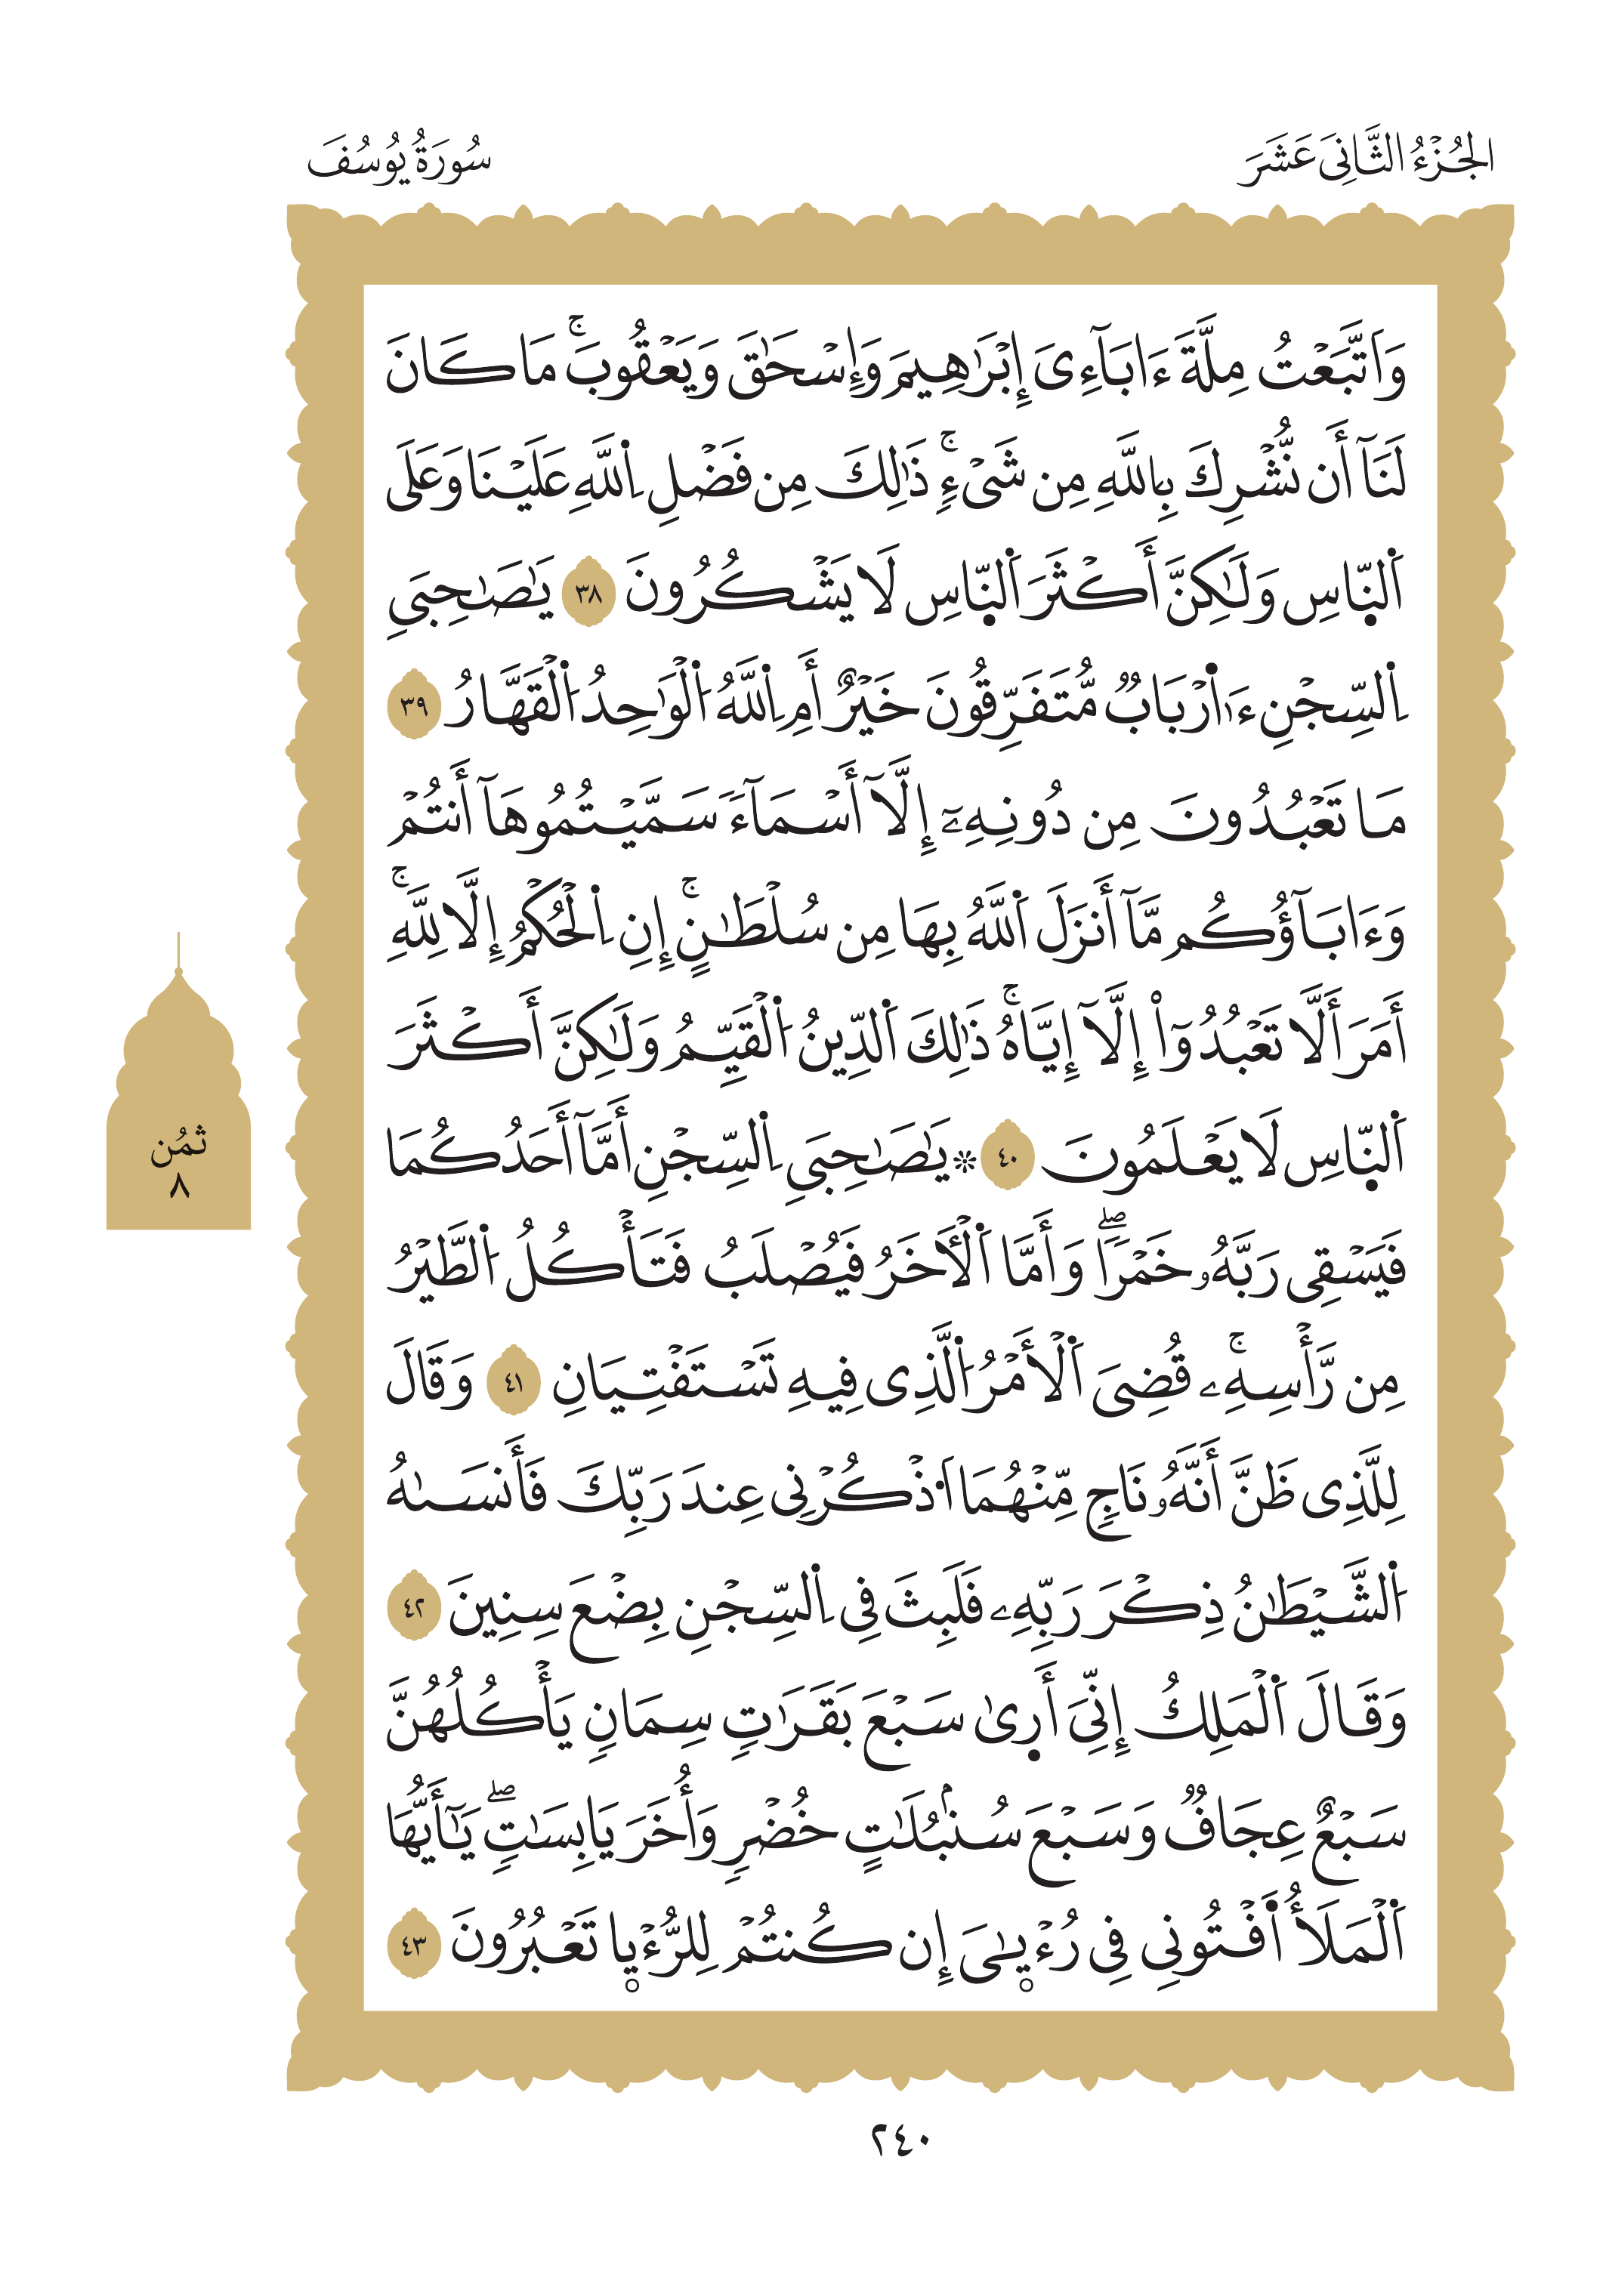 الجُزْءُ الثَّانِيَ عَشَرَ
سُورَةُ يُوسُفَ
وَاَتَّبَعْتُ مِلَّةَ ءَابَآءِىَ إِبْرَٰهِيمَ وَإِسْحَٰقَ وَيَعْقُوبَۚ مَا كَانَ
لَنَآ أَن نُّشْرِكَ بِاللَّهِ مِن شَىْءٍۚ ذَٰلِكَ مِن فَضْلِ اِ۬للَّهِ عَلَيْنَا وَعَلَى
اَ۬لنّ۪اسِ وَلَٰكِنَّ أَكْثَرَ اَ۬لنّ۪اسِ لَا يَشْكُرُونَ ٣٨ يَٰصَٰحِبَىِ
اِ۬لسِّجْنِ ءَا۬رْبَابٌ مُّتَفَرِّقُونَ خَيْرٌ أَمِ اِ۬للَّهُ اُ۬لْوَٰحِدُ اُ۬لْقَهَّارُ ٣٩
مَا تَعْبُدُونَ مِن دُونِهِۦٓ إِلَّآ أَسْمَآءً سَمَّيْتُمُوهَآ أَنتُمْ
وَءَابَآؤُكُم مَّآ أَنزَلَ اَ۬للَّهُ بِهَا مِن سُلْطَٰنٍۚ إِنِ اِ۬لْحُكْمُ إِلَّا لِلَّهِۚ
أَمَرَ أَلَّا تَعْبُدُوٓاْ إِلَّآ إِيَّاهُۚ ذَٰلِكَ اَ۬لدِّينُ اُ۬لْقَيِّمُ وَلَٰكِنَّ أَكْثَرَ
اَ۬لنّ۪اسِ لَا يَعْلَمُونَ ٤٠ ۞ يَٰصَٰحِبَىِ اِ۬لسِّجْنِ أَمَّآ أَحَدُكُمَا
فَيَسْقِى رَبَّهُۥ خَمْرًاۖ وَأَمَّا اَ۬لْأٓخَرُ فَيُصْلَبُ فَتَأْكُلُ اُ۬لطَّيْرُ
مِن رَّأْسِهِۦۚ قُضِىَ اَ۬لْأَمْرُ اُ۬لَّذِى فِيهِ تَسْتَفْتِيَانِ ٤١ وَقَالَ
لِلَّذِى ظَنَّ أَنَّهُۥ نَاجٍ مِّنْهُمَا اَ۟ذْكُرْنِى عِندَ رَبِّكَ فَأَنسَىٰهُ
اُ۬لشَّيْطَٰنُ ذِكْرَ رَبِّهِۦ فَلَبِثَ فِى اِ۬لسِّجْنِ بِضْعَ سِنِينَ ٤٢
وَقَالَ اَ۬لْمَلِكُ إِنِّىَ أَر۪ىٰ سَبْعَ بَقَرَٰتٍ سِمَانٍ يَأْكُلُهُنَّ
سَبْعٌ عِجَافٌ وَسَبْعَ سُنۢبُلَٰتٍ خُضْرٍ وَأُخَرَ يَابِسَٰتٍۖ يَٰٓأَيُّهَا
اَ۬لْمَلَأُ ا۬فْتُونِى فِى رُءْيٰ۪ىَ إِن كُنتُمْ لِلرُّءْي۪ا تَعْبُرُونَ ٤٣
ثمُن
٨
٢٤٠